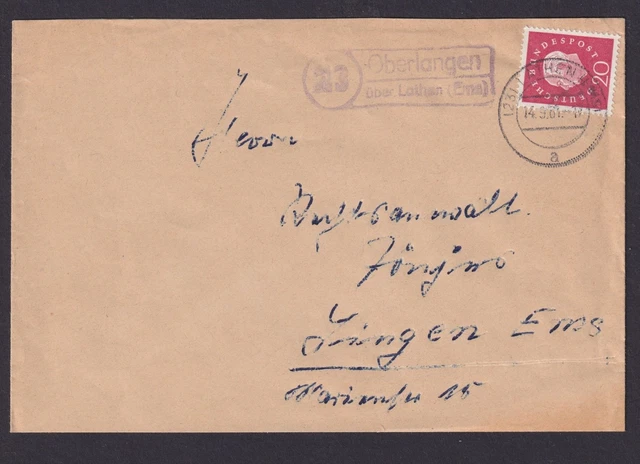 23
Oberlangen
über Lathen (Ems)
DEUTSCHE BUNDESPOST
20
(23)
14.9.61
a
Herrn
Rechtsanwalt
Lingen Ems
15